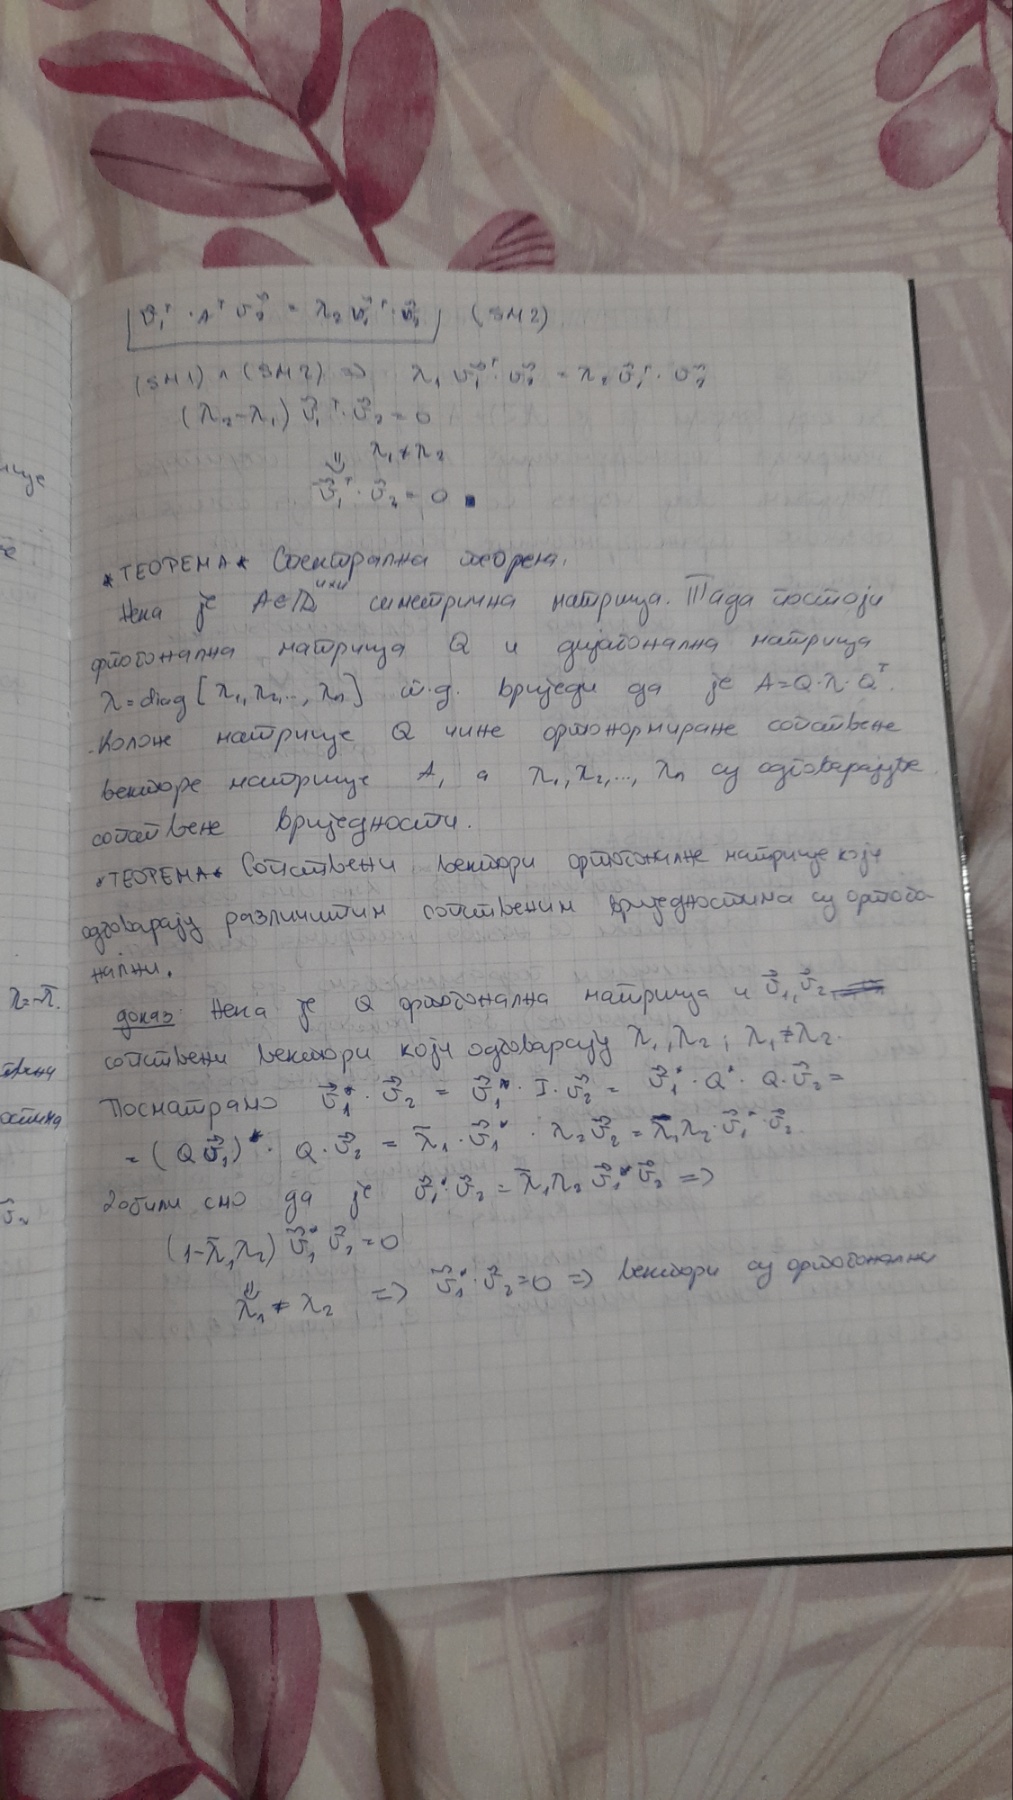 v⃗₁ᵀ · Aᵀ v⃗₂ = λ₂ v⃗₁ᵀ · v⃗₂ (SM2)
(SM1) ∧ (SM2) => λ₁ v⃗₁ᵀ · v⃗₂ = λ₂ v⃗₁ᵀ · v⃗₂
(λ₂-λ₁) v⃗₁ᵀ · v⃗₂ = 0
⇓ λ₁ ≠ λ₂
v⃗₁ᵀ · v⃗₂ = 0 ■
*ТЕОРЕМА* Спектрална теорема.
Нека је A∈ℝⁿˣⁿ симетрична матрица. Тада постоји
ортогонална матрица Q и дијагонална матрица
λ = diag [λ₁, λ₂, ..., λn] т.д. вриједи да је A=Q·λ·Qᵀ.
Колоне матрице Q чине ортонормиране сопствене
векторе матрице A, а λ₁, λ₂, ..., λn су одговарајуће
сопствене вриједности.
*ТЕОРЕМА* Сопствени вектори ортогоналне матрице који
одговарају различитим сопственим вриједностима су ортого-
нални.
доказ: Нека је Q ортогонална матрица и v⃗₁, v⃗₂
сопствени вектори који одговарају λ₁, λ₂ ; λ₁ ≠ λ₂.
Посматрамо v⃗₁* · v⃗₂ = v⃗₁* · I · v⃗₂ = v⃗₁* · Q* · Q · v⃗₂ =
= (Q v⃗₁)* · Q · v⃗₂ = λ̄₁ · v⃗₁* · λ₂ v⃗₂ = λ̄₁λ₂ · v⃗₁* · v⃗₂
Добили смо да је v⃗₁* · v⃗₂ = λ̄₁λ₂ v⃗₁* v⃗₂ =>
(1-λ̄₁λ₂) v⃗₁* v⃗₂ = 0
⇓
λ₁ ≠ λ₂ => v⃗₁* · v⃗₂ = 0 => вектори су ортогонални
λ=-λ̄.